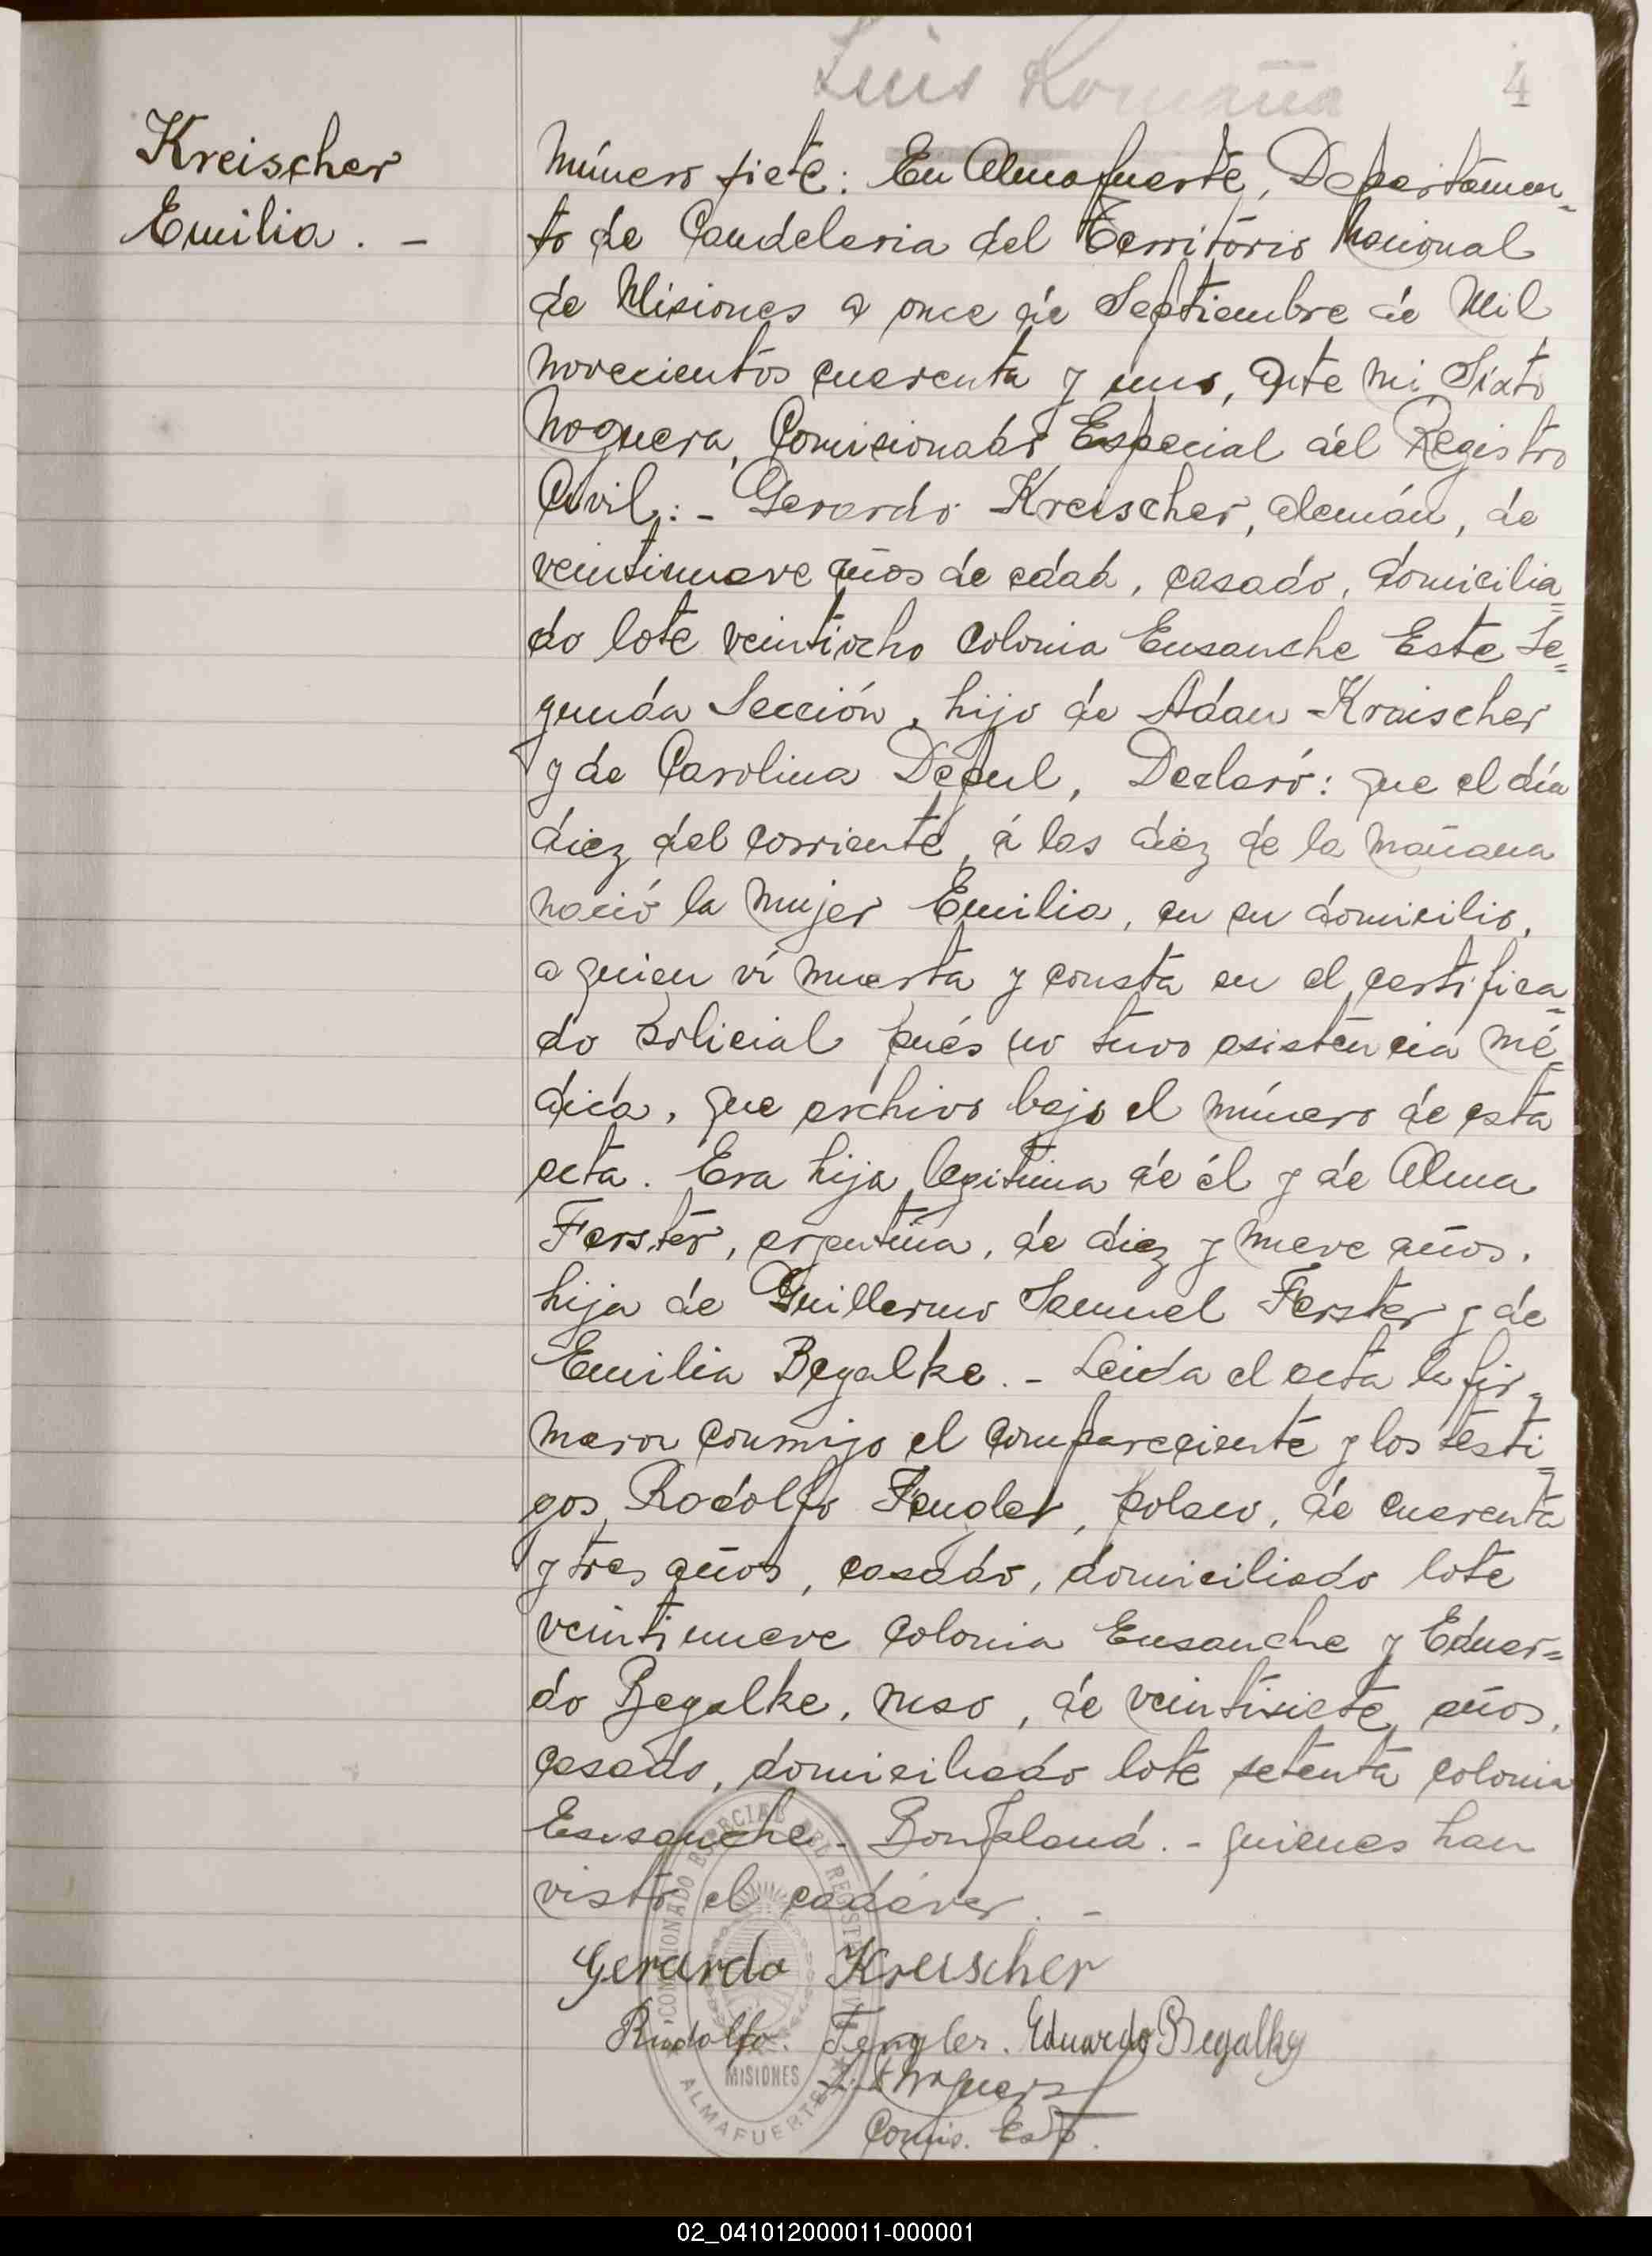 Luis Romaña
4
Kreischer
Emilia. -
Número siete: En Almafuerte, Departamen-
to de Candelaria del Territorio Nacional
de Misiones a once de Septiembre de Mil
novecientos cuarenta y uno, ante mi, Sixto
Noguera, Comisionado Especial del Registro
Civil: - Gerardo Kreischer, alemán, de
veintinueve años de edad, casado, domicilia=
do lote veintiocho colonia Ensanche Este Se=
gunda Sección, hijo de Adan Kraischer
y de Carolina Deful, Declaró: que el día
diez del corriente, á las diez de la mañana
nació la mujer Emilia, en su domicilio,
a quien ví muerta y consta en el certifica=
do policial pués no tuvo asistencia mé=
dica, que archivo bajo el número de esta
acta. Era hija legitima de él y de Alma
Ferster, argentina, de diez y nueve años,
hija de Guillermo Samuel Ferster y de
Emilia Begalke. - Leida el acta la fir=
maron conmigo el compareciente y los testi=
gos, Rodolfo Fengler, polaco, de cuarenta
y tres años, casado, domiciliado lote
veintinueve colonia Ensanche y Eduar=
do Begalke, ruso, de veintisiete años,
casado, domiciliado lote setenta colonia
Ensanche - Bonpland. - quienes han
visto el cadáver. -
Gerardo Kreischer
Rudolfo. Fengler. Eduardo Begalke
S. Noguera
Comis. Esp.
COMISIONADO ESPECIAL DEL REGISTRO CIVIL
MISIONES
ALMAFUERTE
02_041012000011-000001